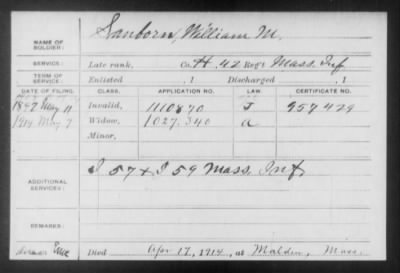 Sanborn, William M.
NAME OF SOLDIER:
SERVICE: Late rank, Co. H, 42 Reg't Mass. Inf
TERM OF SERVICE: Enlisted , 1 Discharged , 1
DATE OF FILING. CLASS. APPLICATION NO. LAW. CERTIFICATE NO.
1892 May 11 Invalid, 1110870 J 957429
1914 May 7 Widow, 1027.340 a
Minor,
ADDITIONAL SERVICES: I 57 & I 59 Mass. Inf
REMARKS:
Died Apr 17, 1914, at Malden, Mass.